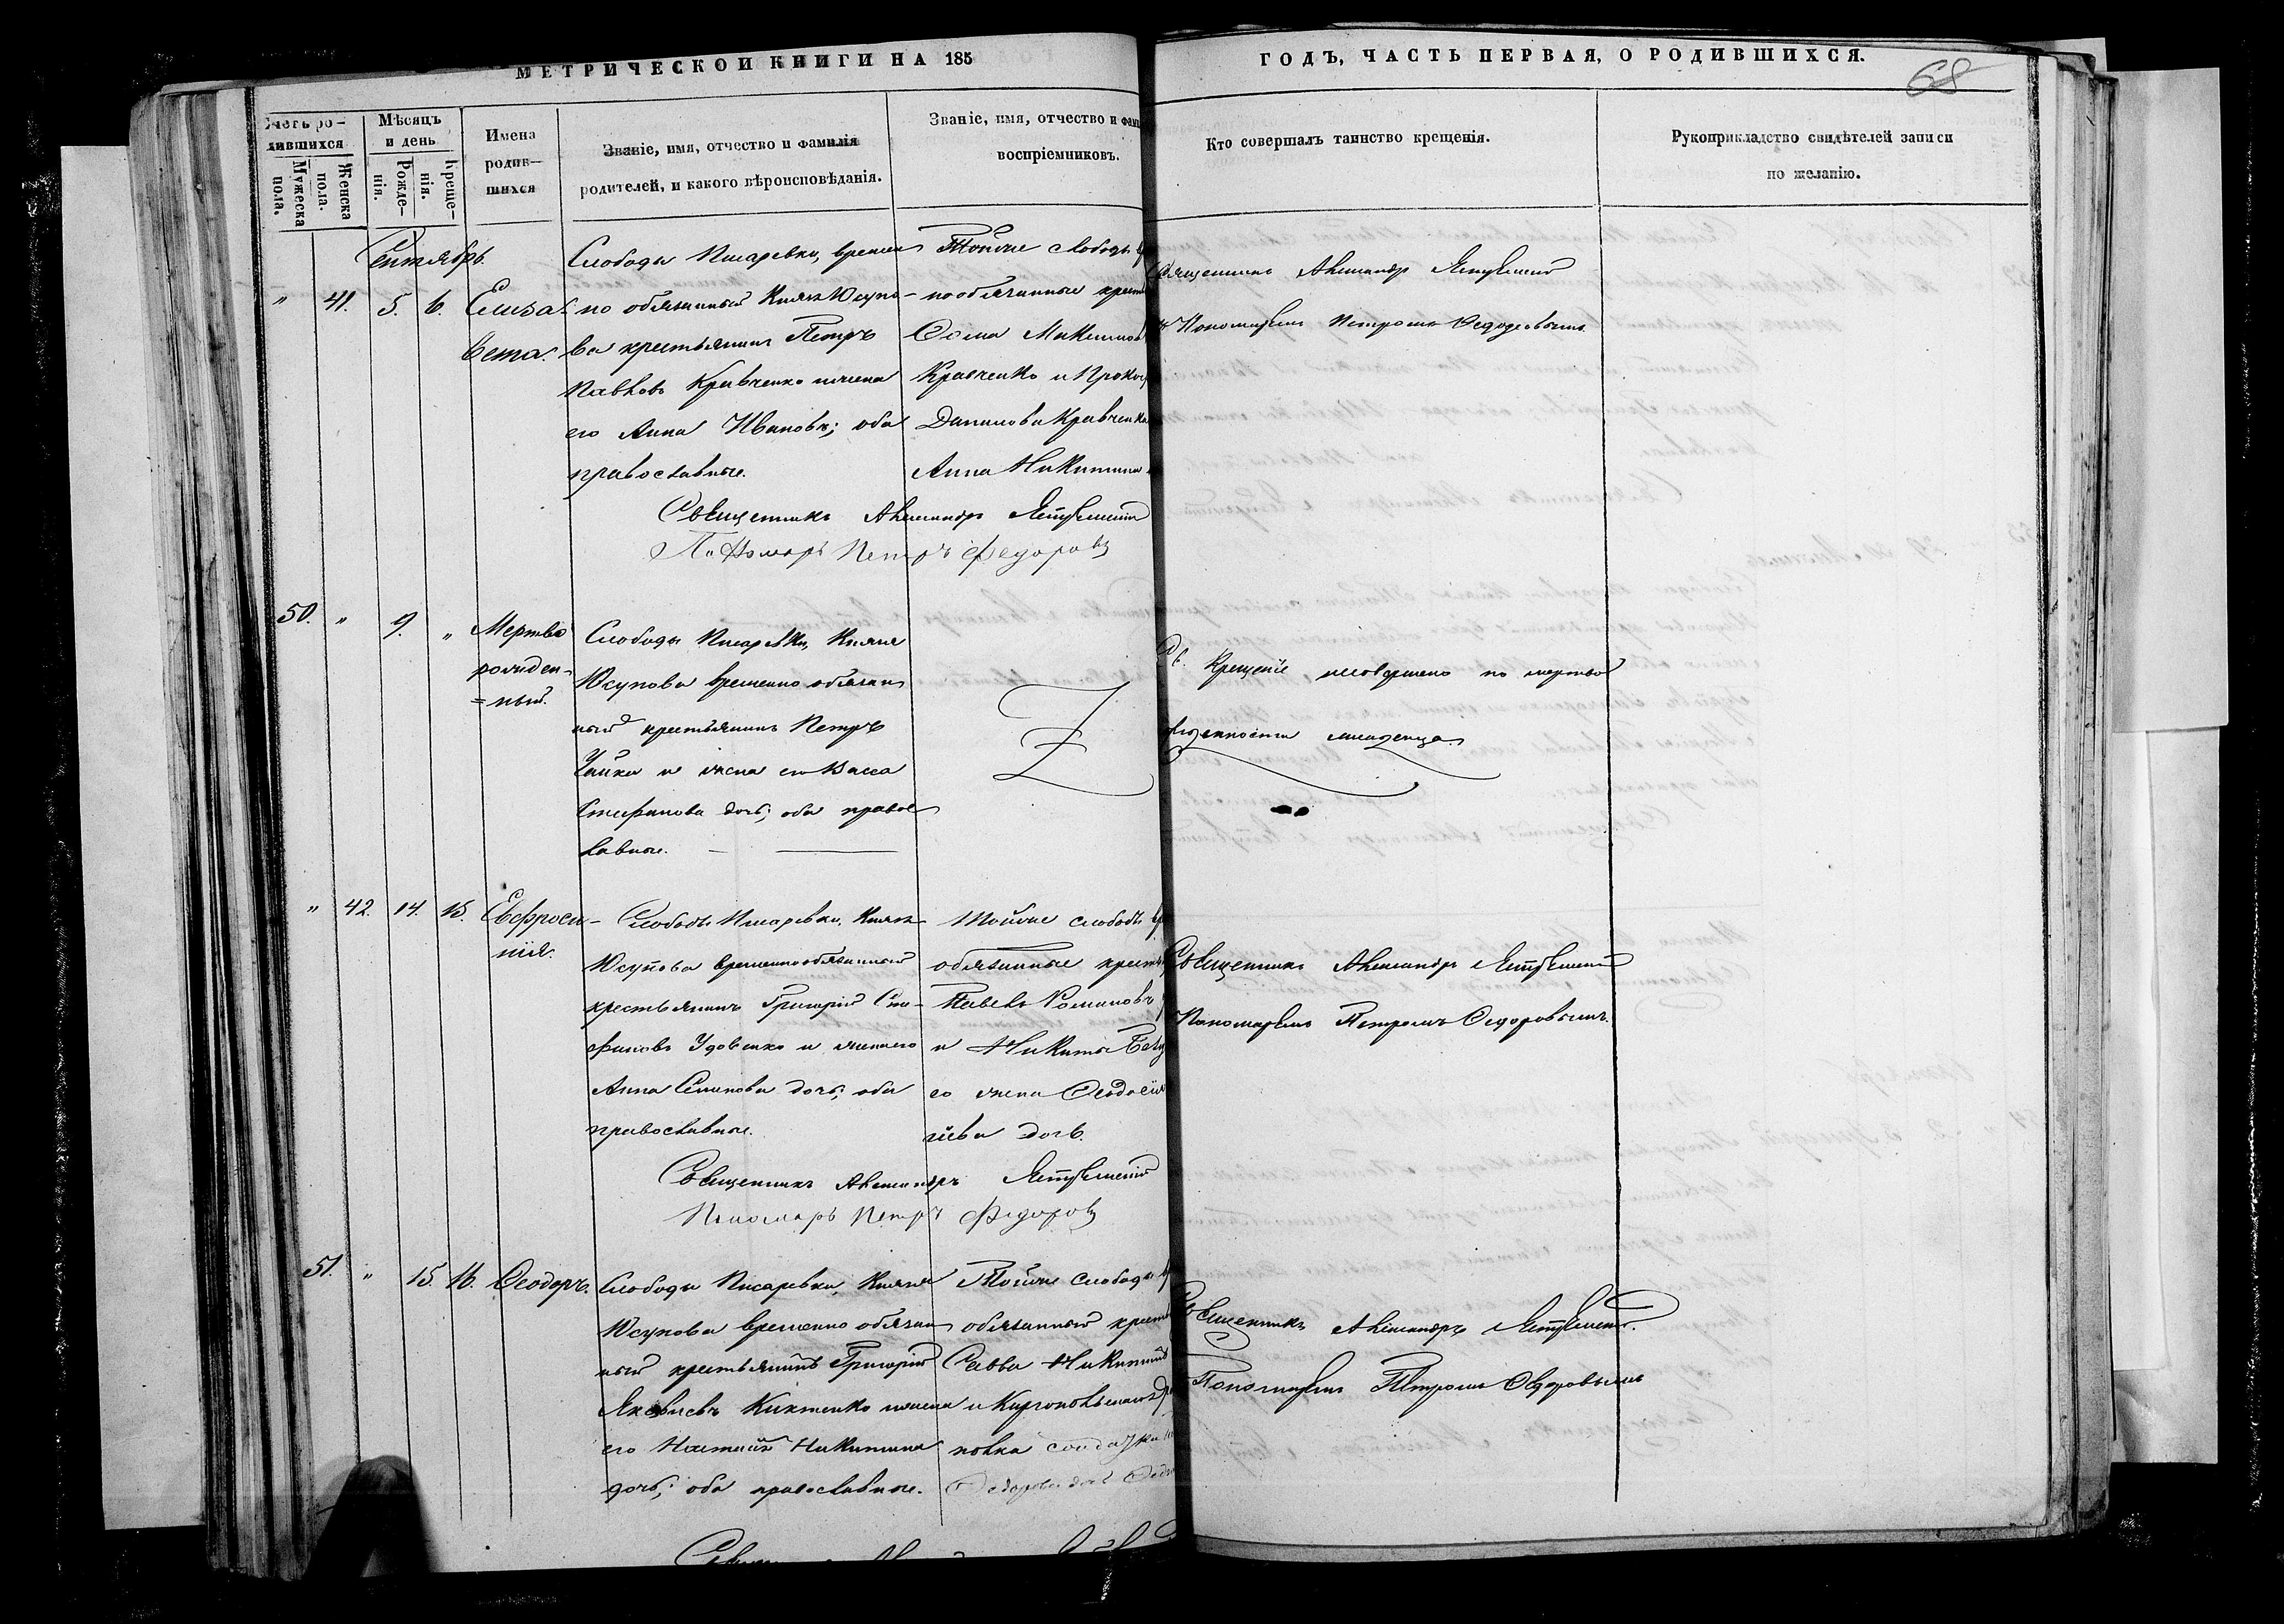 МЕТРИЧЕСКОЙ КНИГИ НА 185
ГОДЪ, ЧАСТЬ ПЕРВАЯ, О РОДИВШИХСЯ.
68
Счетъ ро-
дившихся
Мужеска пола.
Женска пола.
Мѣсяцъ
и день
Рожде-
нія.
Креще-
нія.
Имена
родив-
шихся
Званіе, имя, отчество и фамилія
родителей, и какого вѣроисповѣданія.
Званіе, имя, отчество и фами
воспріемниковъ.
Кто совершалъ таинство крещенія.
Рукоприкладство свидѣтелей записи
по желанію.
Сентябрь.
" 41. 5. 6. Елиза-
вета.
Слободы Писаревки, времен
но обязанный Князя Юсупо-
ва крестьянинъ Петръ
Павловъ Кравченко и жена
его Анна Иванова; оба
православные.
Тойже слободы
но обязанные крест
Максимов
Кравченко и Проко
Данилова Кравченка
Анна Никитина
Священникъ Александръ
Пономаремъ Петромъ Ѳеодоровымъ.
Священникъ Александръ
Пономарь Петръ Федоровъ
50. " 9. " Мертво
рожден-
=ный.
Слободы Писаревки, Князя
Юсупова временно обязан
ный крестьянинъ Петръ
Чайка и жена его Васса
Стефанова дочь; оба правос
лавные.
Св. Крещеніе несовершено по мертво
рожденности младенца.
" 42. 14. 15. Евфроси-
нія.
Слободы Писаревки, Князя
Юсупова временнообязанный
крестьянинъ Григорій Сте-
фановъ Удовенко и жена его
Анна Семенова дочь; оба
православные.
Тойже слободы вр
обязанные крестья
Павелъ Романовъ
и Никиты
его жена Ѳеодосія
дочь.
Священникъ Александръ
Пономаремъ Петромъ Ѳедоровымъ.
Священникъ Александръ
Пономарь Петръ Федоровъ
51. " 15. 16. Ѳеодоръ.
Слободы Писаревки, Князя
Юсупова временно обязан
ный крестьянинъ Григорій
Яковлевъ Кихтенко и жена
его Наталія Никитина
дочь; оба православные.
Тойже слободы вр
обязанный крест
Савва Никитинъ
солдатка
Ѳедорова дочь
Священникъ Александръ
Пономаремъ Петромъ Ѳедоровымъ